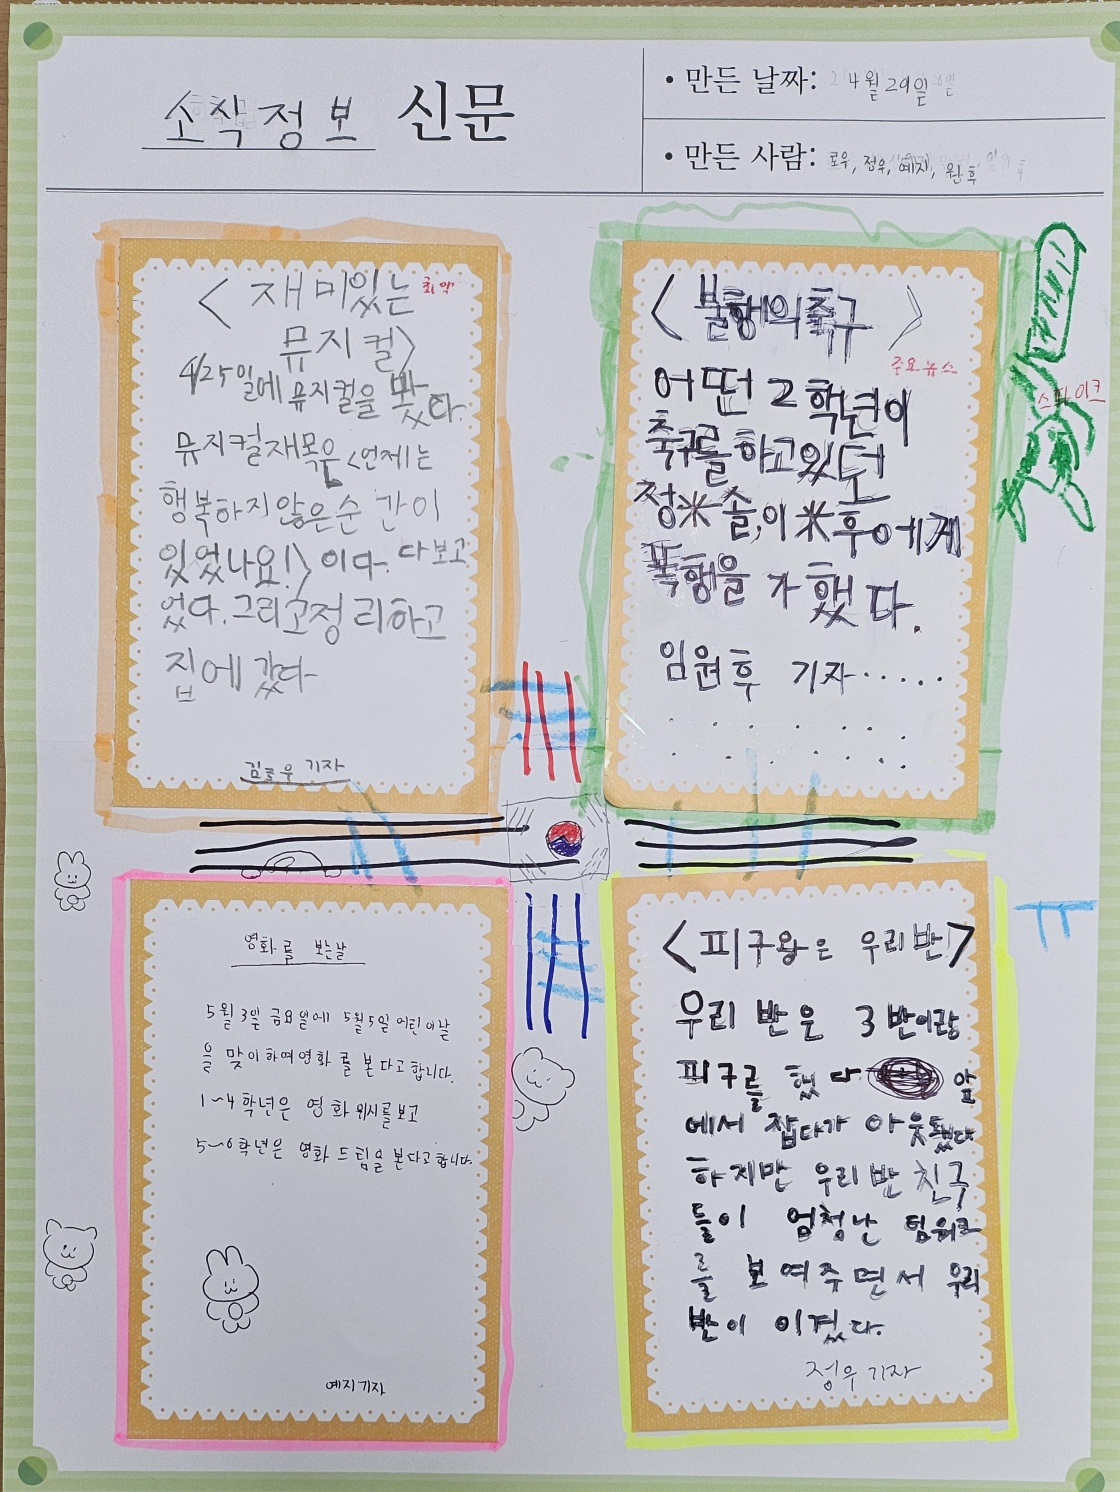 소식정보 신문
• 만든 날짜: 4월 29일
• 만든 사람: 로우, 정우, 예지, 원후
< 재미있는
뮤지컬>
4/25일에 뮤지컬을 봤다.
뮤지컬재목은 <언제는
행복하지 않은 순간이
있었나요!> 이다. 다보고
었다. 그리고정리하고
집에 갔다
김로우 기자
< 불행의축구 >
주요뉴스
어떤 2학년이
축구를 하고있던
정※솔,이※후에게
폭행을 가했다.
임원후 기자.....
스파이크
영화를 보는날
5월 3일 금요일에 5월5일 어린이날
을 맞이하여영화를 본다고합니다.
1~4학년은 영화 위시를보고
5~6학년은 영화 드림을 본다고합니다.
예지기자
<피구왕은 우리반>
우리 반은 3반이랑
피구를 했다 앞
에서 잡다가 아웃됐다
하지만 우리반 친구
들이 엄청난 팀워크
를 보여주면서 우리
반이 이겼다.
정우 기자